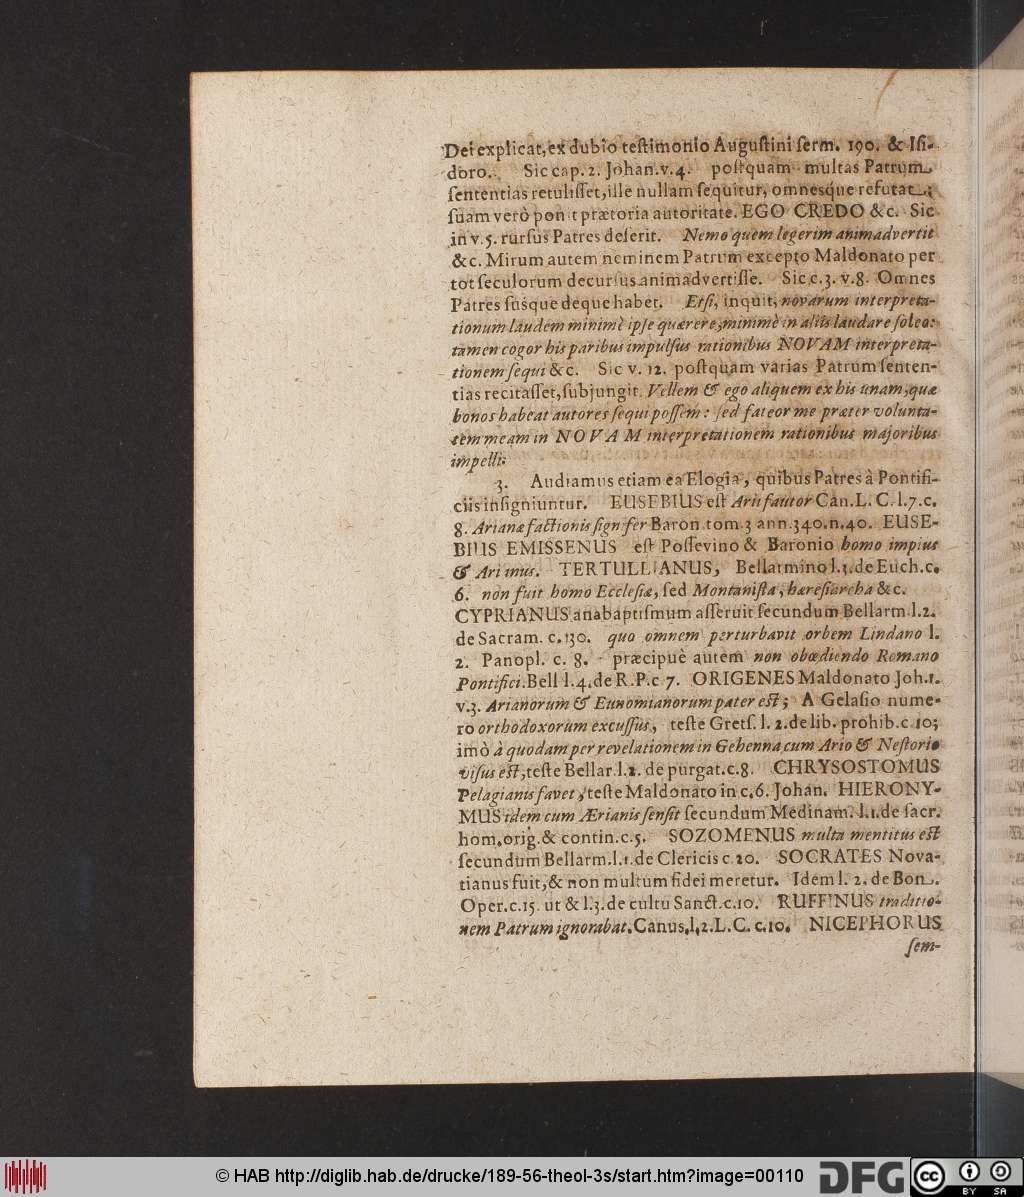 Dei explicat, ex dubio teſtimonio Auguſtini ſerm. 190. & Iſi-
doro. Sic cap. 2. Johan. v. 4. poſtquam multas Patrum
ſententias retuliſſet, ille nullam ſequitur, omnesque refutat;
ſuam verò ponit prætoria autoritate. EGO CREDO &c. Sic
in v. 5. rurſus Patres deſerit. Nemo quem legerim animadvertit
&c. Mirum autem neminem Patrum excepto Maldonato per
tot ſeculorum decurſus animadvertiſſe. Sic c. 3. v. 8. Omnes
Patres ſuſque deque habet. Etſi, inquit, novarum interpreta-
tionum laudem minimè ipſe quærere, minimè in aliis laudare ſoleo:
tamen cogor his paribus impulſus rationibus NOVAM interpreta-
tionem ſequi &c. Sic v. 12. poſtquam varias Patrum ſenten-
tias recitaſſet, ſubjungit. Vellem & ego aliquem ex his unam, quæ
bonos habeat autores ſequi poſſem: ſed fateor me præter volunta-
tem meam in NOVAM interpretationem rationibus majoribus
impelli.
3. Audiamus etiam ea Elogia, quibus Patres à Pontifi-
ciis inſigniuntur. EUSEBIUS eſt Arii fautor Can. L. C. l. 7. c.
8. Arianæ factionis ſignifer Baron. tom. 3 ann. 340. n. 40. EUSE-
BIUS EMISSENUS eſt Poſſevino & Baronio homo impius
& Arianus. TERTULLIANUS, Bellarmino l. 3. de Euch. c.
6. non fuit homo Eccleſiæ, ſed Montaniſta, hæreſiarcha &c.
CYPRIANUS anabaptiſmum aſſeruit ſecundum Bellarm. l. 2.
de Sacram. c. 130. quo omnem perturbavit orbem Lindano l.
2. Panopl. c. 8. præcipuè autem non obœdiendo Romano
Pontifici. Bell l. 4. de R. P. c 7. ORIGENES Maldonato Joh. 1.
v. 3. Arianorum & Eunomianorum pater eſt; A Gelaſio nume-
ro orthodoxorum excuſſus, teſte Gretſ. l. 2. de lib. prohib. c. 10;
imò à quodam per revelationem in Gehenna cum Ario & Neſtorio
viſus eſt, teſte Bellar. l. 2. de purgat. c. 8. CHRYSOSTOMUS
Pelagianis favet, teſte Maldonato in c. 6. Johan. HIERONY-
MUS idem cum Ærianis ſenſit ſecundum Medinam. l. 1. de ſacr.
hom. orig. & contin. c. 5. SOZOMENUS multa mentitus eſt
ſecundum Bellarm. l. 1. de Clericis c. 20. SOCRATES Nova-
tianus fuit, & non multum fidei meretur. Idem l. 2. de Bon.
Oper. c. 15. ut & l. 3. de cultu Sanct. c. 10. RUFFINUS traditio-
nem Patrum ignorabat. Canus, l. 2. L. C. c. 10. NICEPHORUS
ſem-
© HAB http://diglib.hab.de/drucke/189-56-theol-3s/start.htm?image=00110
DFG
cc BY SA